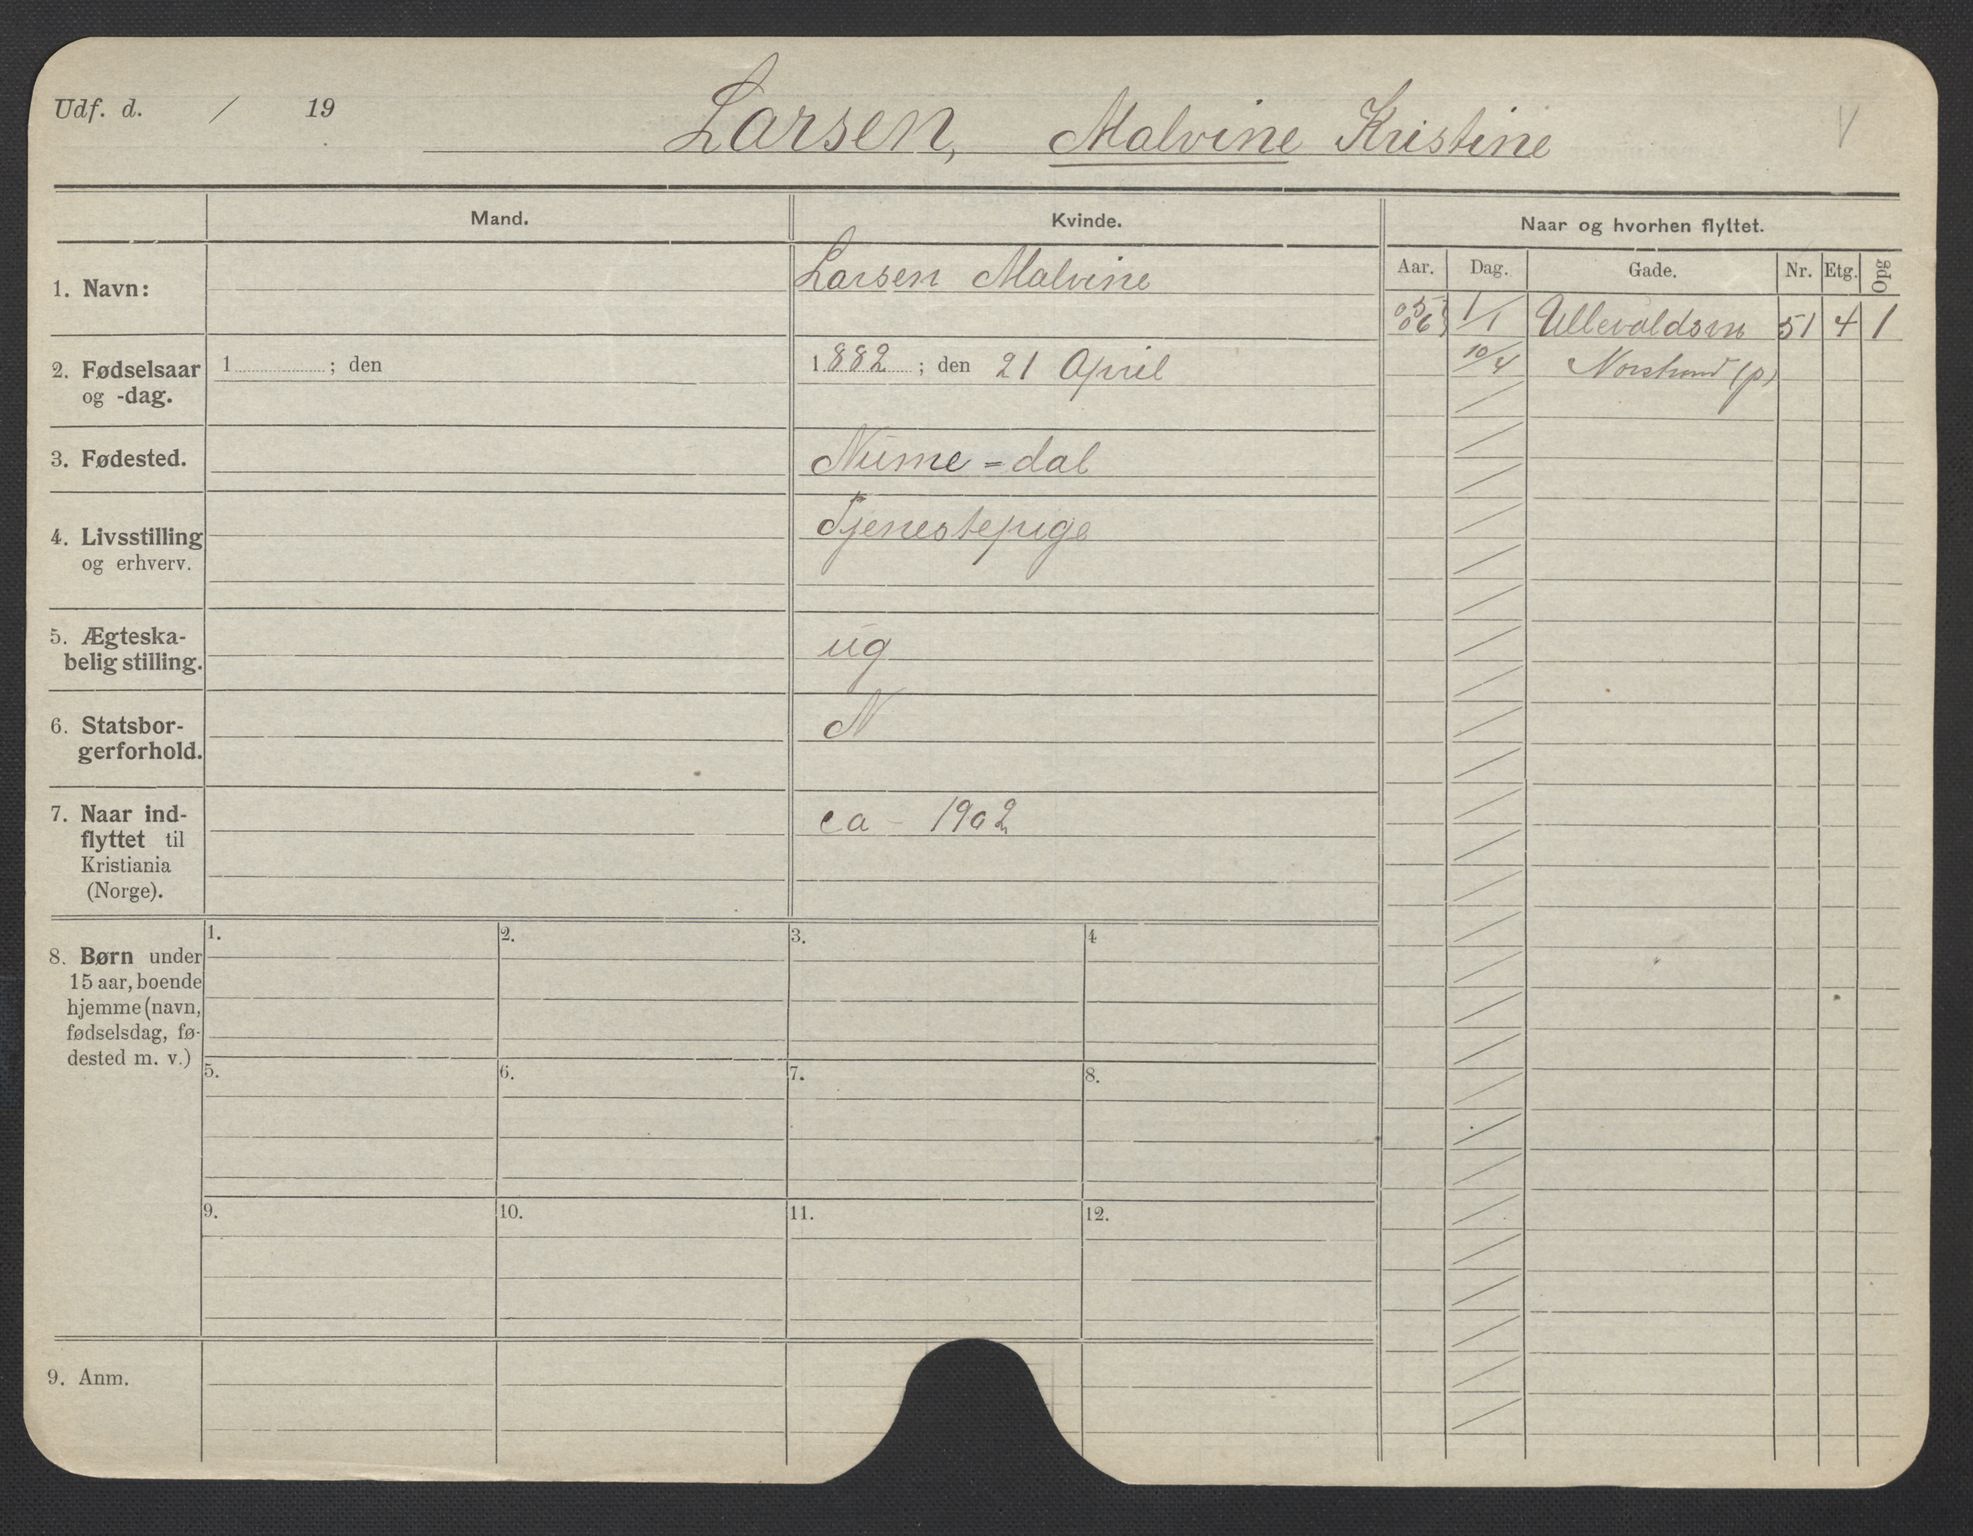 Udf. d. / 19
Larsen, Malvine Kristine
Mand.
Kvinde.
Naar og hvorhen flyttet.
Aar. Dag. Gade. Nr. Etg. Opg
1. Navn:
Larsen Malvine
05
06 1/1 Ullevoldsvn 51 4 1
10/4 Norstrand (p)
2. Fødselsaar
og -dag.
1 ; den
1882 ; den 21 April
3. Fødested.
Nume-dal
4. Livsstilling
og erhverv.
Tjenestepige
5. Ægteska-
belig stilling.
ug
6. Statsbor-
gerforhold.
N
7. Naar ind-
flyttet til
Kristiania
(Norge).
ca - 1902
8. Børn under
15 aar, boende
hjemme (navn,
fødselsdag, fø-
dested m. v.)
1. 2. 3. 4
5. 6. 7. 8.
9. 10. 11. 12.
9. Anm.